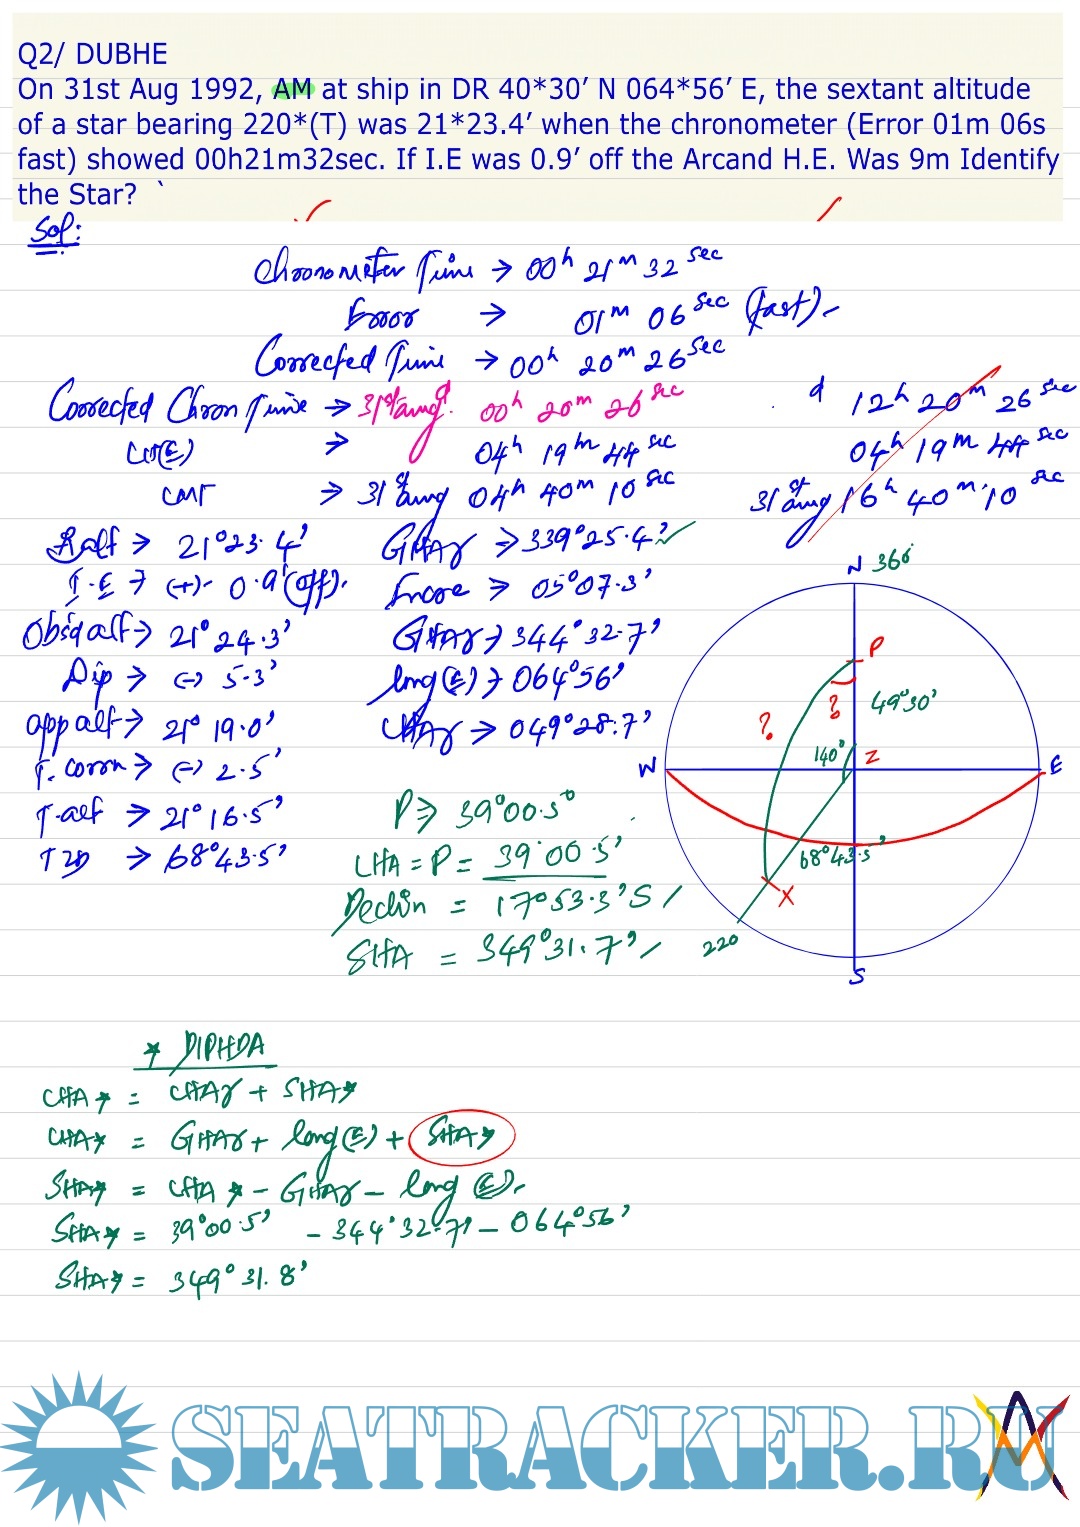 Q2/ DUBHE
On 31st Aug 1992, AM at ship in DR 40*30’ N 064*56’ E, the sextant altitude
of a star bearing 220*(T) was 21*23.4’ when the chronometer (Error 01m 06s
fast) showed 00h21m32sec. If I.E was 0.9’ off the Arcand H.E. Was 9m Identify
the Star? `
Sol:
Chronometer Time → 00h 21m 32sec
Error → 01m 06sec (fast).
Corrected Time → 00h 20m 26sec
Corrected Chron Time → 31st aug. 00h 20m 26sec
d 12h 20m 26sec
LIT(E) → 04h 19m 44sec
04h 19m 44sec
GMT → 31st aug 04h 40m 10sec
31st aug 16h 40m 10sec
S.alt → 21°23.4'
I.E → (+) 0.9'(off).
Obsd alt → 21°24.3'
Dip → (-) 5.3'
app alt → 21° 19.0'
T. corrn → (-) 2.5'
T.alt → 21°16.5'
TZD → 68°43.5'
GHAγ → 339°25.4'
Incre → 05°07.3'
GHAγ → 344°32.7'
long(E) → 064°56'
LHAγ → 049°28.7'
P ⇒ 39°00.5°
LHA = P = 39°00.5'
Declin = 17°53.3'S
SHA = 349°31.7'
N 360
P
?
?
49°30'
140°
Z
W
E
68°43.5'
X
220
S
★ DIPHDA
LHA★ = LHAγ + SHA★
LHA★ = GHAγ + long(E) + SHA★
SHA★ = LHA★ - GHAγ - long (E).
SHA★ = 39°00.5' - 344°32.7' - 064°56'
SHA★ = 349° 31.8'
SEATRACKER.RU